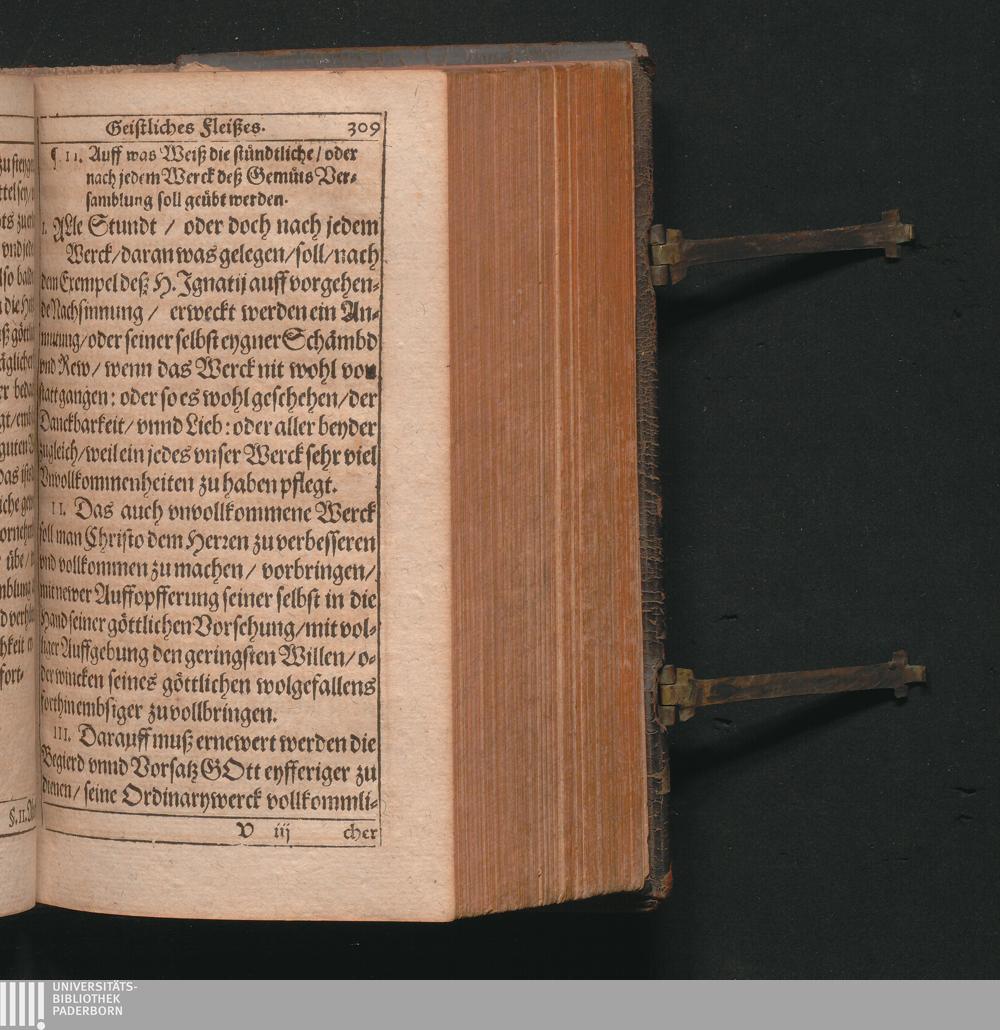 Geistliches Fleißes. 309
¶. II. Auff was Weiß die stündtliche / oder
nach jedem Werck deß Gemüts Ver-
samblung soll geübt werden.
I. Alle Stundt / oder doch nach jedem
Werck / daran was gelegen / soll / nach
dem Exempel deß H. Ignatij auff vorgehen-
de Nachsinnung / erweckt werden ein An-
mutung / oder seiner selbst eygner Schämbd
vnd Rew / wenn das Werck nit wohl von
statt gangen : oder so es wohl geschehen / der
Danckbarkeit / vnnd Lieb : oder aller beyder
zugleich / weil ein jedes vnser Werck sehr viel
Vnvollkommenheiten zu haben pflegt.
II. Das auch vnvollkommene Werck
soll man Christo dem Herren zu verbesseren
vnd vollkommen zu machen / vorbringen /
mit newer Auffopfferung seiner selbst in die
Hand seiner göttlichen Vorsehung / mit völ-
liger Auffgebung den geringsten Willen / o-
der wincken seines göttlichen wolgefallens
forthin embsiger zu vollbringen.
III. Darauff muß ernewert werden die
Begierd vnnd Vorsatz GOtt eyfferiger zu
dienen / seine Ordinarywerck vollkommli-
V iij cher
§. II.
UNIVERSITÄTS-
BIBLIOTHEK
PADERBORN